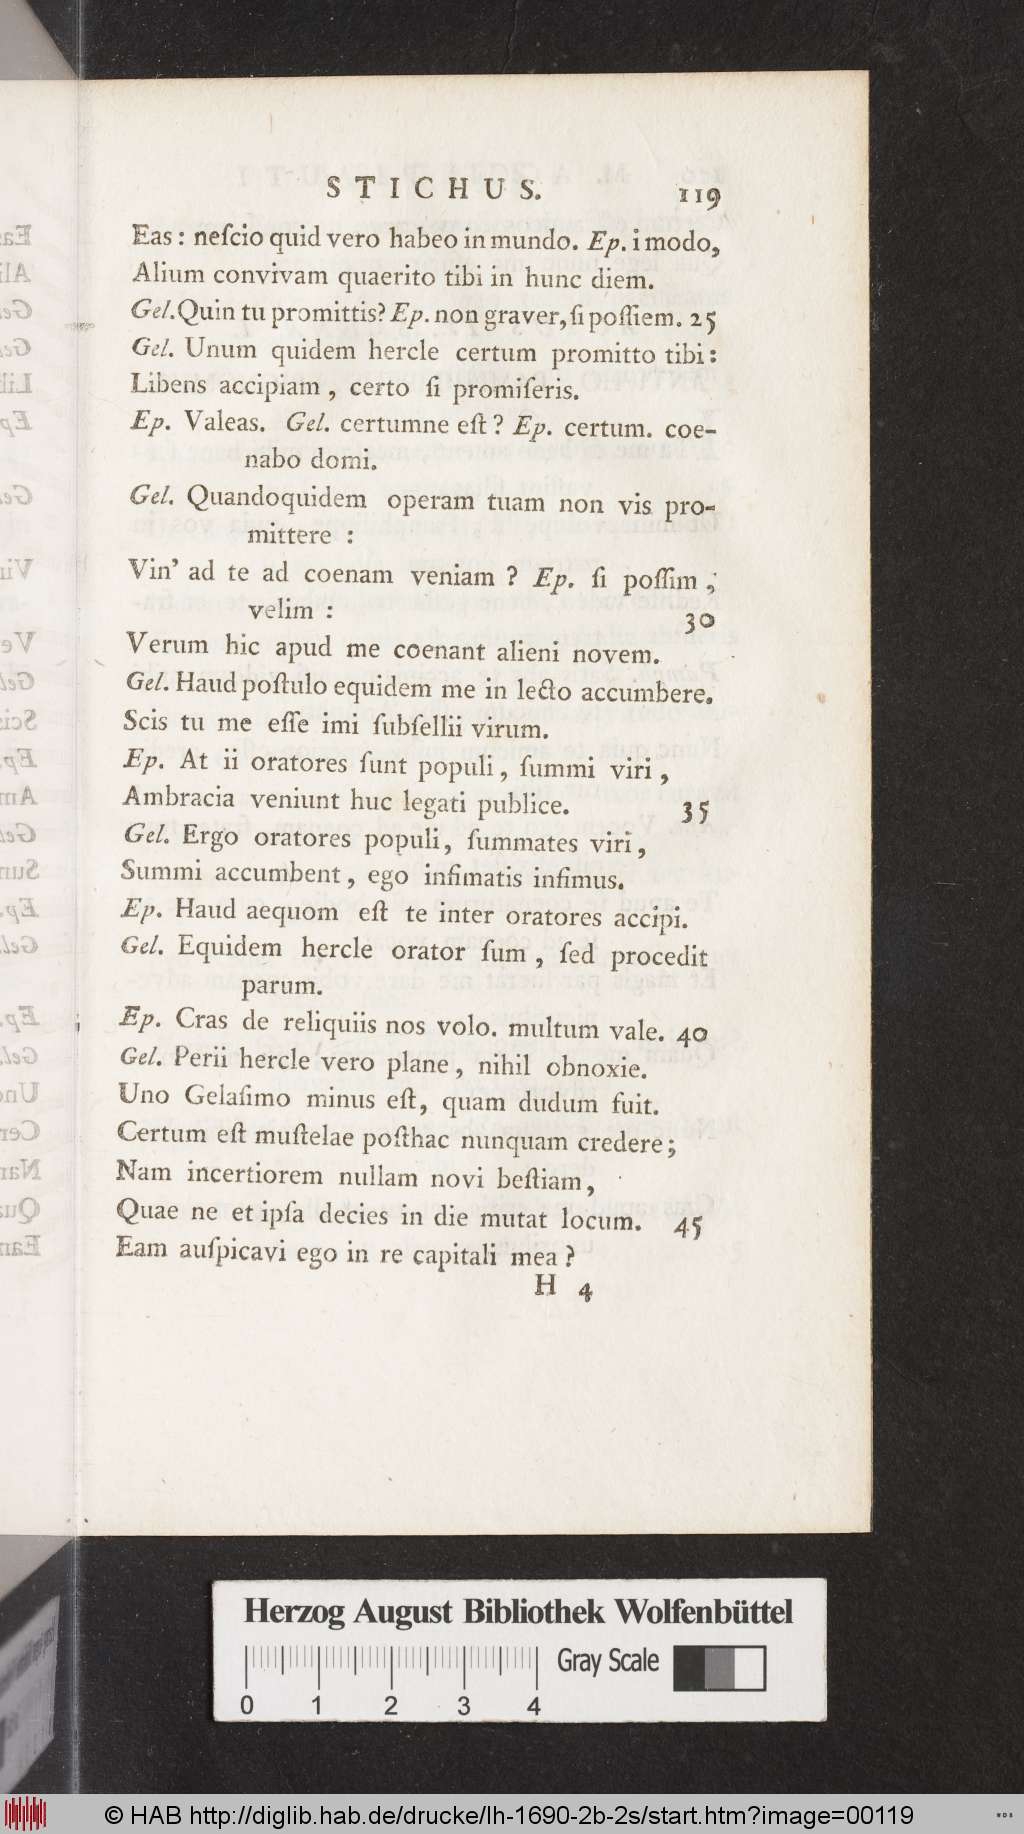 STICHUS. 119
Eas : neſcio quid vero habeo in mundo. Ep. i modo,
Alium convivam quaerito tibi in hunc diem.
Gel. Quin tu promittis? Ep. non graver, ſi poſſiem. 25
Gel. Unum quidem hercle certum promitto tibi :
Libens accipiam , certo ſi promiſeris.
Ep. Valeas. Gel. certumne eſt ? Ep. certum. coe-
nabo domi.
Gel. Quandoquidem operam tuam non vis pro-
mittere :
Vin' ad te ad coenam veniam ? Ep. ſi poſſim ,
velim : 30
Verum hic apud me coenant alieni novem.
Gel. Haud poſtulo equidem me in lecto accumbere.
Scis tu me eſſe imi ſubſellii virum.
Ep. At ii oratores ſunt populi , ſummi viri ,
Ambracia veniunt huc legati publice. 35
Gel. Ergo oratores populi, ſummates viri ,
Summi accumbent , ego infimatis infimus.
Ep. Haud aequom eſt te inter oratores accipi.
Gel. Equidem hercle orator ſum , ſed procedit
parum.
Ep. Cras de reliquiis nos volo. multum vale. 40
Gel. Perii hercle vero plane , nihil obnoxie.
Uno Gelaſimo minus eſt, quam dudum fuit.
Certum eſt muſtelae poſthac nunquam credere ;
Nam incertiorem nullam novi beſtiam ,
Quae ne et ipſa decies in die mutat locum. 45
Eam auſpicavi ego in re capitali mea ?
H 4
Herzog August Bibliothek Wolfenbüttel
Gray Scale
0 1 2 3 4
© HAB http://diglib.hab.de/drucke/lh-1690-2b-2s/start.htm?image=00119